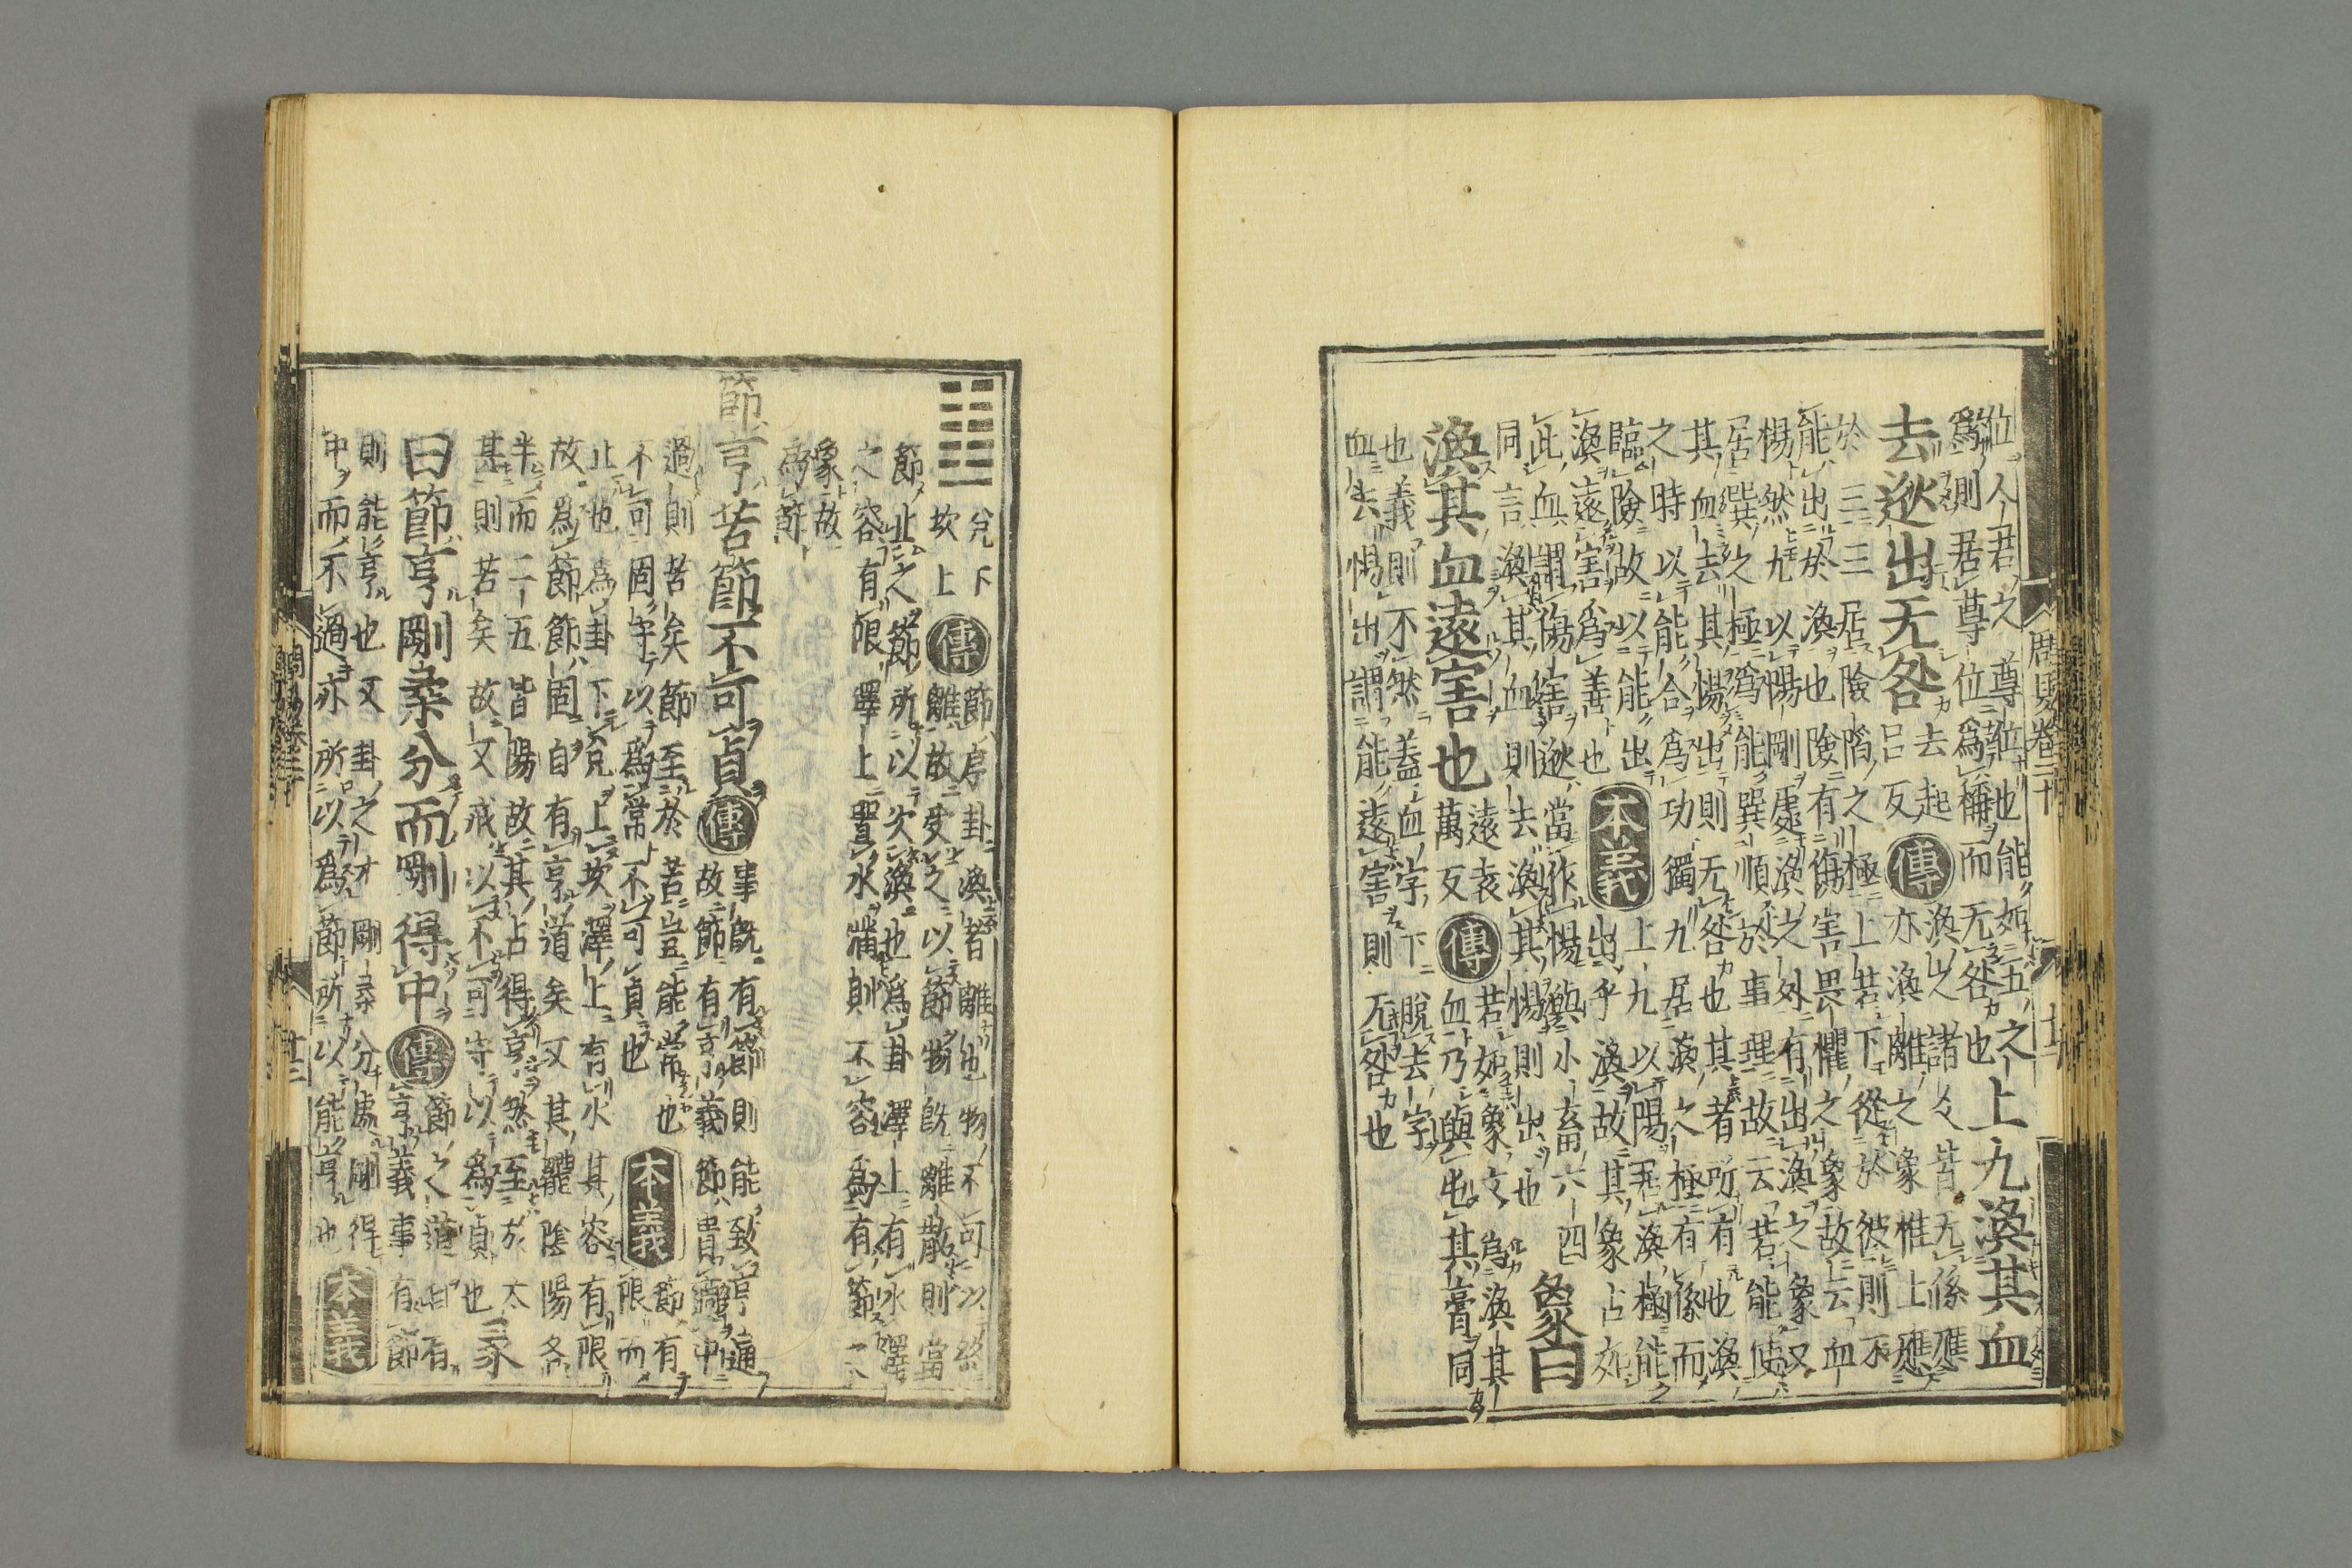 位人君之尊位也能如五之
爲則居尊位爲稱而无咎也
上九渙其血
去逖出无咎
去起
呂反
傳
渙之諸爻皆无係應
亦渙離之象惟上應
於三三居險陷之極上若下從於彼則不
能出於渙也險有傷害畏懼之象故云血
惕然九以陽剛處渙之外有出渙之象又
居巽之極爲能巽順於事理故云若能使
其血去其惕出則无咎也其者所有也渙
之時以能合爲功獨九居渙之極有係而
臨險故以能出
渙遠害爲善也
本義
上九以陽居渙極能
出乎渙故其象占如
此血謂傷害逖當作惕與小畜六四
同言渙其血則去渙其惕則出也
象曰
渙其血遠害也
遠袁
萬反
傳
若如象文爲渙其
血乃與屯其膏同
也義則不然蓋血字下脫去字
血去惕出謂能遠害則无咎也
周易卷二十
兌下
坎上
傳
節序卦渙者離也物不可以終
離故受之以節物旣離散則當
節止之節所以次渙也爲卦澤上有水澤
之容有限澤上置水滿則不容爲有節之
象故
爲節
節亨苦節不可貞
傳
事旣有節則能致亨通
故節有亨義節貴適中
過則苦矣節至於苦豈能常也
不可固守以爲常不可貞也
本義
節有
限而
止也爲卦下兌上坎澤上有水其容有限
故爲節節固自有亨道矣又其體陰陽各
半而二五皆陽故其占得亨然至於太
甚則苦矣故又戒以不可守以爲貞也
彖
曰節亨剛柔分而剛得中
傳
節之道自有
亨義事有節
則能亨也又卦之才剛柔分處剛得
中而不過亦所以爲節所以能亨也
本義